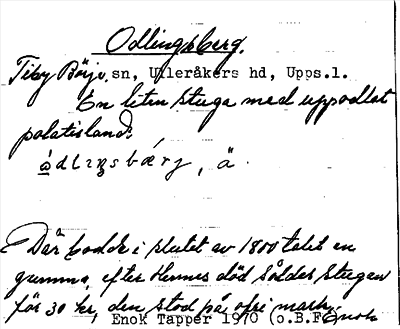 Odlingsberg.
Tiby Börje sn, Ulleråkers hd, Upps.l.
En liten stuga med uppodlat
potatisland.
ådlıŋsbærj, ä.
Där bodde i slutet av 1800 talet en
gumma, efter hennes död såldes stugan
för 30 kr, den stod på ofri mark. Enok
Enok Tapper 1970 (o.B.F.